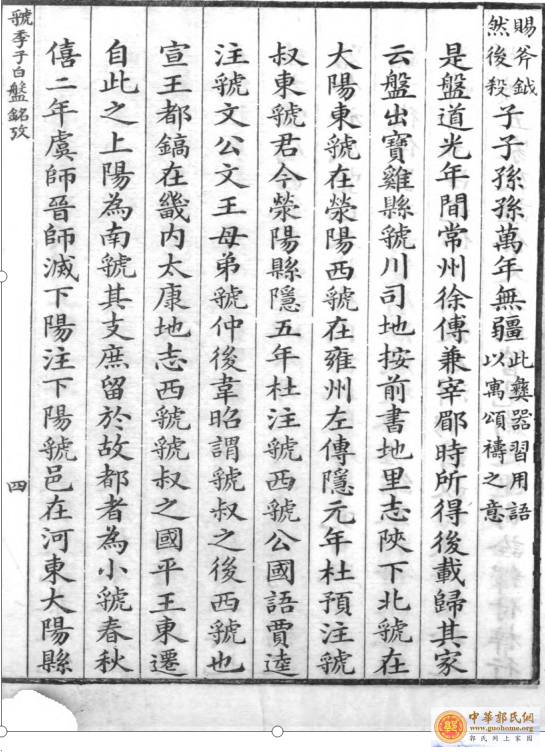 賜斧鉞
然後殺
子子孫孫萬年無疆
此彝器習用語
以寓頌禱之意
是盤道光年間常州徐傅兼宰郿時所得後載歸其家
云盤出寶雞縣虢川司地按前書地里志陝下北虢在
大陽東虢在滎陽西虢在雍州左傳隱元年杜預注虢
叔東虢君今滎陽縣隱五年杜注虢西虢公國語賈逵
注虢文公文王母弟虢仲後韋昭謂虢叔之後西虢也
宣王都鎬在畿內太康地志西虢虢叔之國平王東遷
自此之上陽為南虢其支庶留於故都者為小虢春秋
僖二年虞師晉師滅下陽注下陽虢邑在河東大陽縣
虢季子白盤銘攷
四
中華郭氏網
www.guohome.org
郭氏网上家园